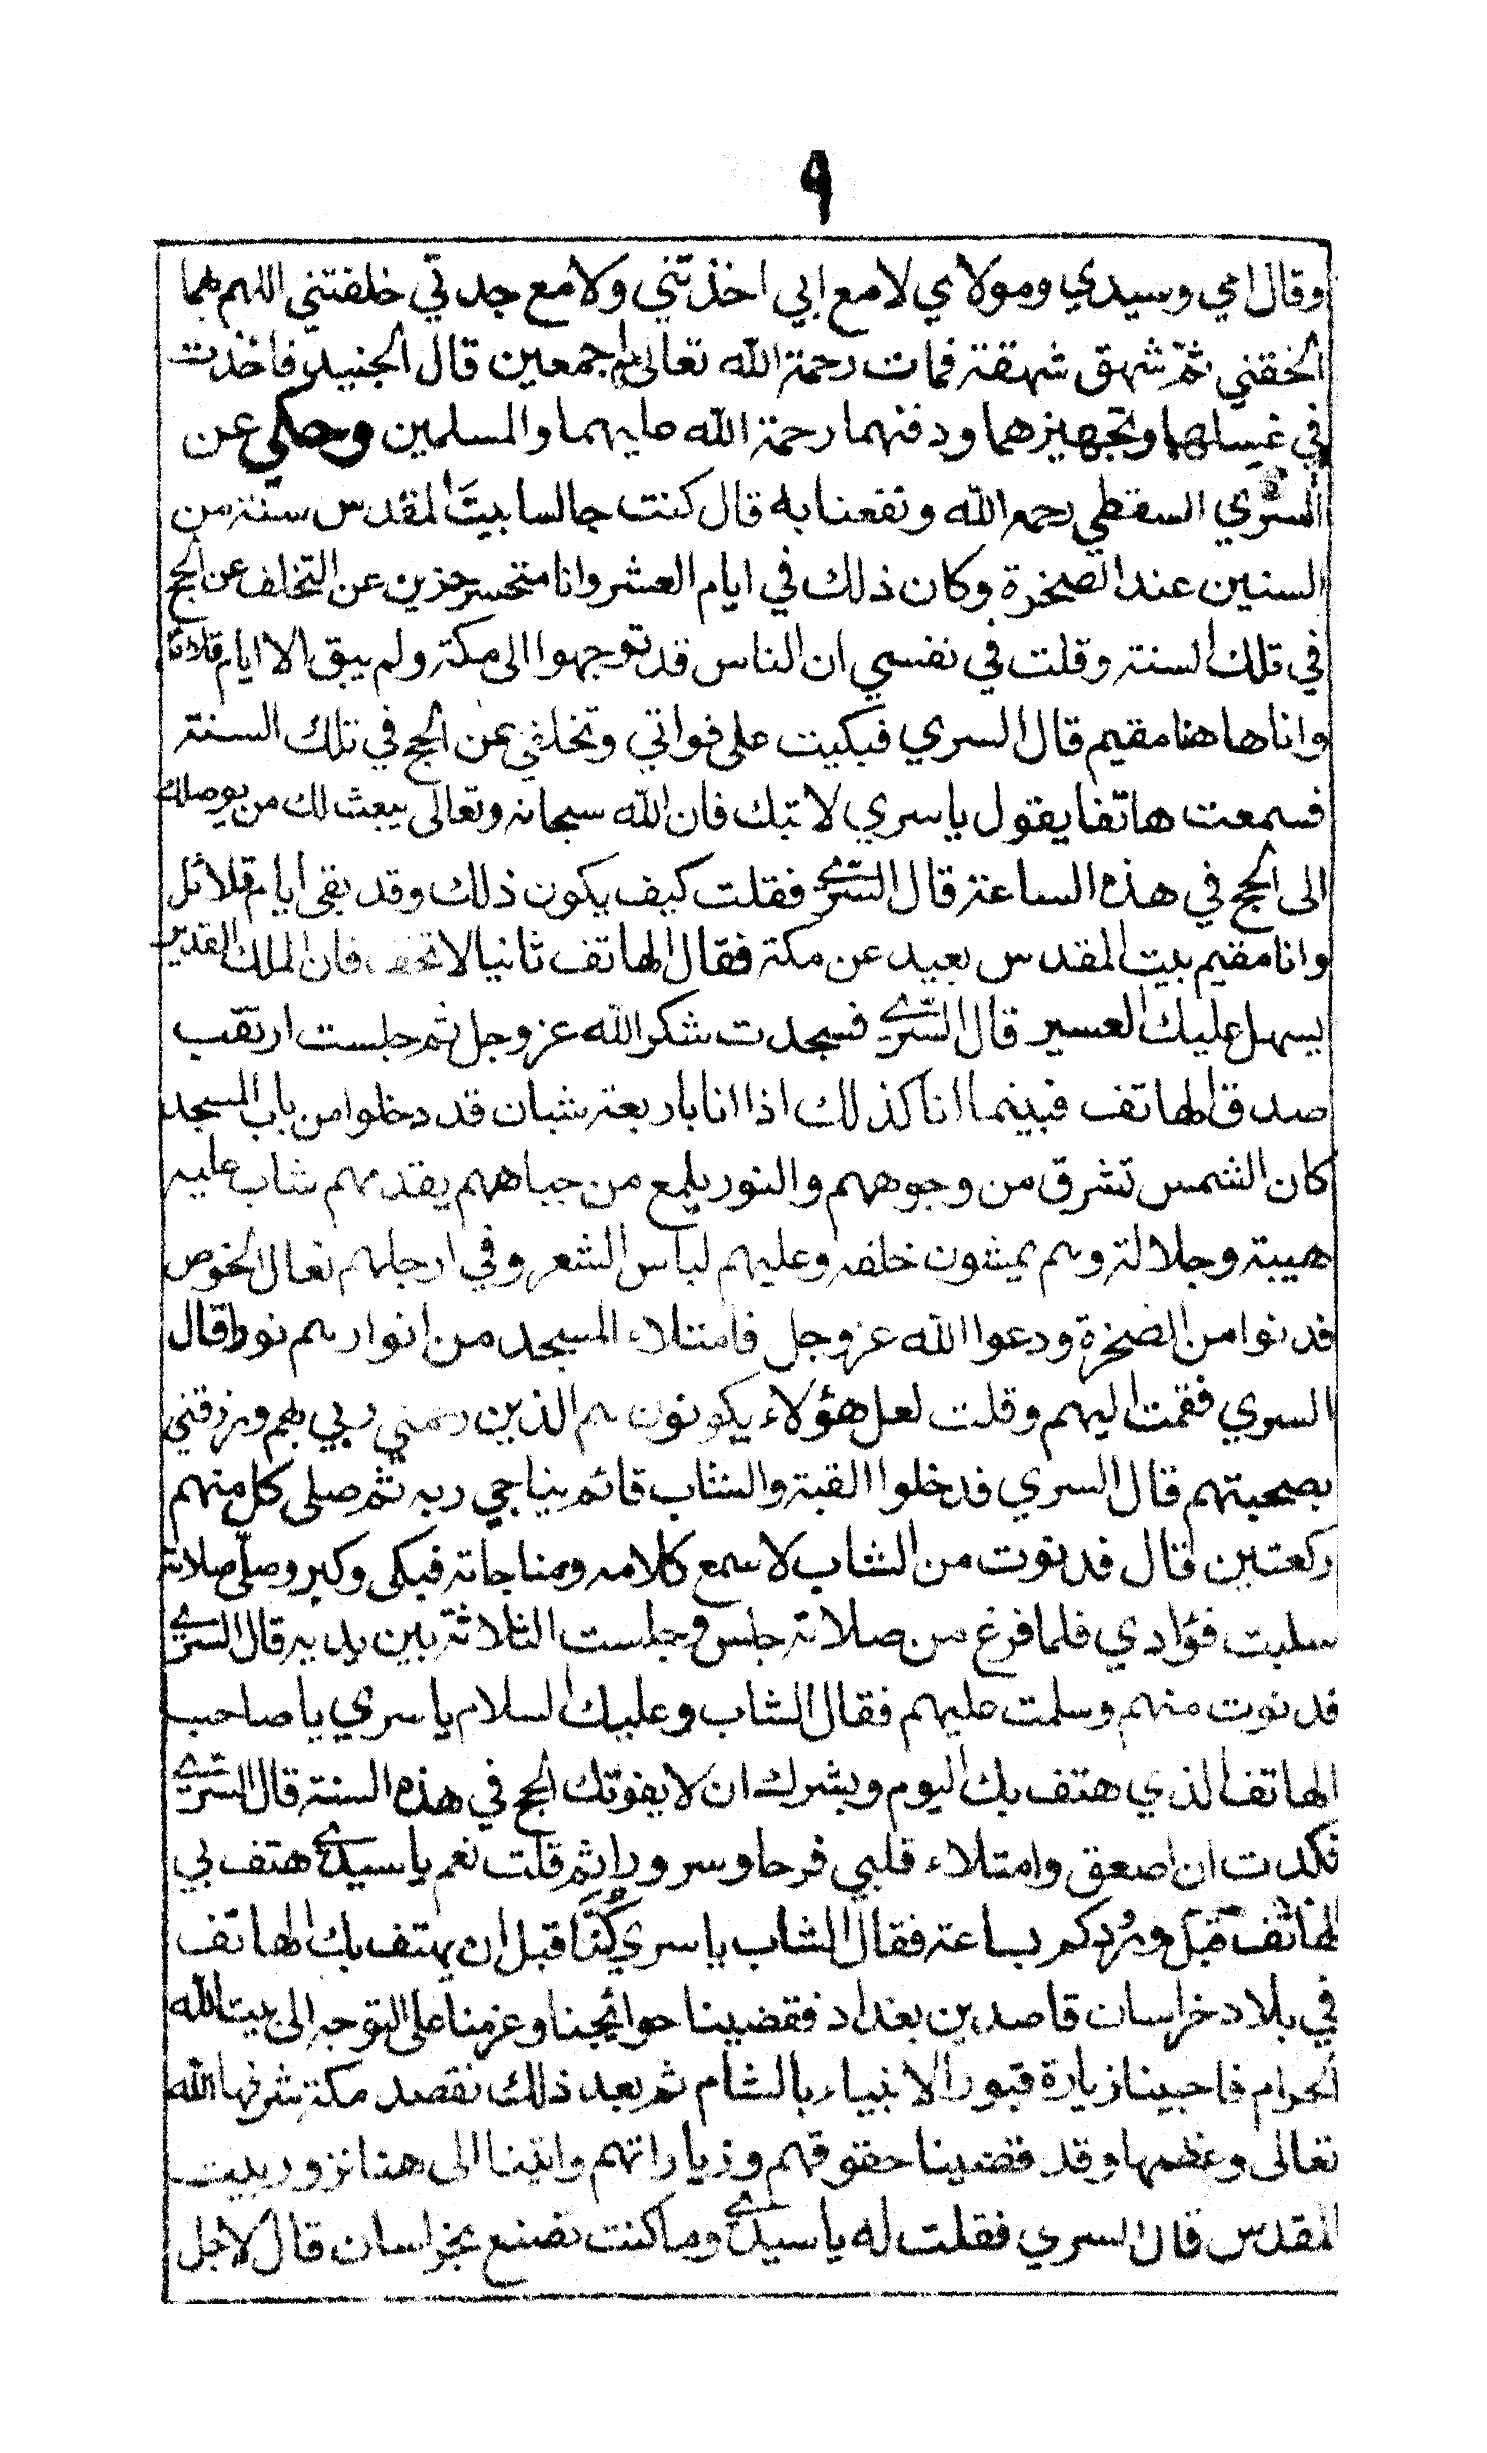 ٩
وقال امي وسيدي ومولاي لا مع ابي اخذتني ولا مع جدتي خلفتني اللهم بهما
الحقني ثم شهق شهقة فمات رحمة الله تعالى اجمعين قال الجنيد فاخذت
في غسلهما وتجهيزهما ودفنهما رحمة الله عليهما والمسلمين وحكي عن
السري السقطي رحمه الله ونفعنا به قال كنت جالسا بيت المقدس سنة من
السنين عند الصخرة وكان ذلك في ايام العشر وانا متحسر حزين عن التخلف عن الحج
في تلك السنة وقلت في نفسي ان الناس قد توجهوا الى مكة ولم يبق الا ايام قلائل
وانا هاهنا مقيم قال السري فبكيت على فواتي وتخلفي عن الحج في تلك السنة
فسمعت هاتفا يقول يا سري لا تبك فان الله سبحانه وتعالى يبعث لك من يوصلك
الى الحج في هذه الساعة قال السري فقلت كيف يكون ذلك وقد بقي ايام قلائل
وانا مقيم ببيت المقدس بعيد عن مكة فقال الهاتف ثانيا لا تخف فان الملك القدير
يسهل عليك العسير قال السري فسجدت شكر الله عز وجل ثم جلست ارتقب
صدق الهاتف فبينما انا كذلك اذا انا باربعة شبان قد دخلوا من باب المسجد
كان الشمس تشرق من وجوههم والنور يلمع من جباههم يقدمهم شاب عليه
هيبة وجلالة وهم يمشون خلفه وعليهم لباس الشعر وفي ارجلهم نعال الخوص
فدنوا من الصخرة ودعوا الله عز وجل فامتلاء المسجد من انوارهم نورا قال
السري فقمت اليهم وقلت لعل هؤلاء يكونون هم الذين رحمني ربي بهم ورزقني
بصحبتهم قال السري فدخلوا القبة والشاب قائم يناجي ربه ثم صلى كل منهم
ركعتين قال فدنوت من الشاب لاسمع كلامه ومناجاته فبكى وكبر وصلى صلاة
سلبت فؤادي فلما فرغ من صلاته جلس وجلست الثلاثة بين يديه قال السري
فدنوت منهم وسلمت عليهم فقال الشاب وعليك السلام يا سري يا صاحب
الهاتف الذي هتف بك اليوم وبشرك ان لا يفوتك الحج في هذه السنة قال السري
فكدت ان اصعق وامتلاء قلبي فرحا وسرورا ثم قلت نعم يا سيدي هتف بي
الهاتف قبل ورودكم بساعة فقال الشاب يا سري كنا قبل ان يهتف بك الهاتف
في بلاد خراسان قاصدين بغداد فقضينا حوائجنا وعزمنا على التوجه الى بيت الله
الحرام فاحببنا زيارة قبور الانبياء بالشام ثم بعد ذلك نقصد مكة شرفها الله
تعالى وعظمها وقد قضينا حقوقهم وزياراتهم واتينا الى هنا نزور بيت
المقدس قال السري فقلت له يا سيدي وما كنت تصنع بخراسان قال لاجل